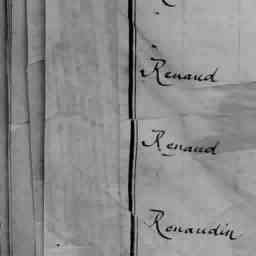 Renaud
Renaud
Renaudin